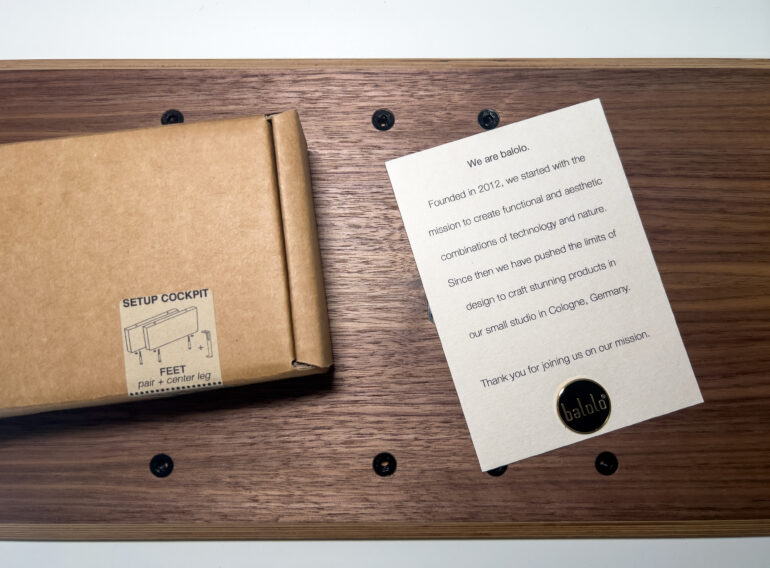 SETUP COCKPIT
+
FEET
pair + center leg
We are balolo.
Founded in 2012, we started with the
mission to create functional and aesthetic
combinations of technology and nature.
Since then we have pushed the limits of
design to craft stunning products in
our small studio in Cologne, Germany.
Thank you for joining us on our mission.
balolo